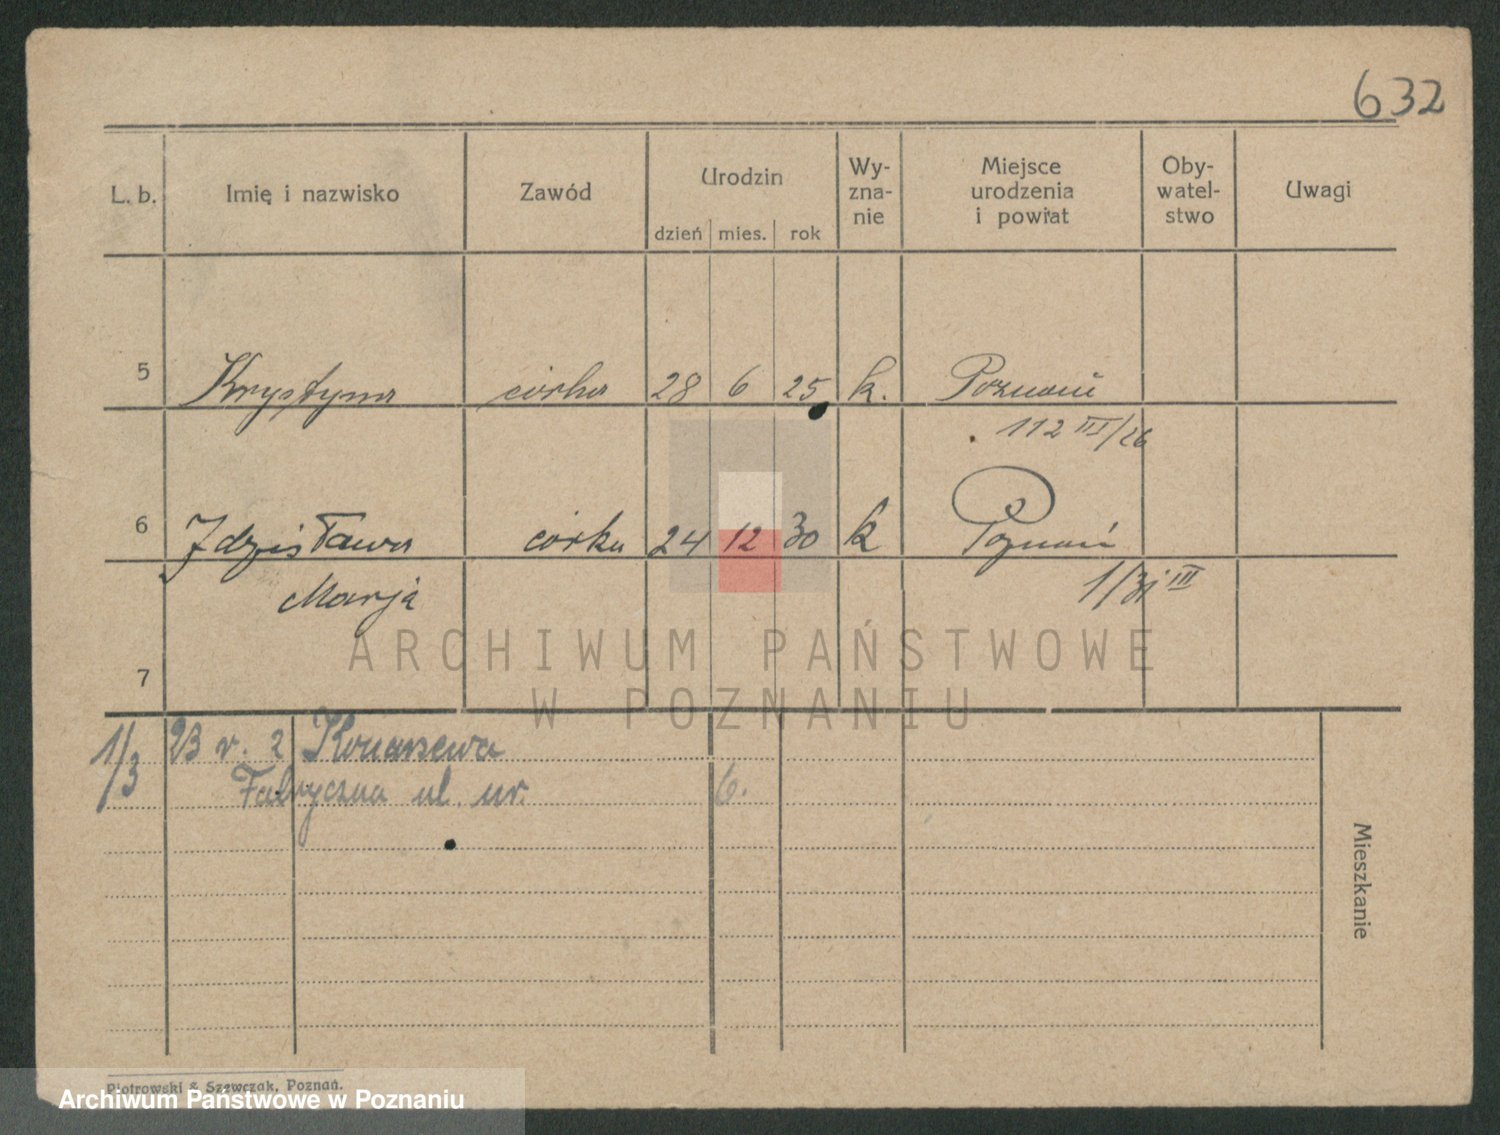 632
L. b. Imię i nazwisko Zawód Urodzin dzień mies. rok Wy-zna-nie Miejsce urodzenia i powiat Oby-watel-stwo Uwagi
5 Krystyna córka 28 6 25 k. Poznań
112 III/26
6 Zdzisława córka 24 12 30 k Poznań
Marja 1/31 III
ARCHIWUM PAŃSTWOWE
7
W POZNANIU
1/3 23 r. 2 Konarzewa
Fabryczna ul. nr. 6.
Mieszkanie
Piotrowski & Szewczak, Poznań.
Archiwum Państwowe w Poznaniu